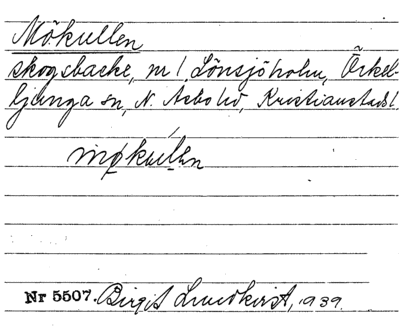 Mökullen
skogsbacke, nr 1 Lönsjöholm, Örkel-
ljunga sn, N. Åsbo hd, Kristianstads l.
møkullen
Nr 5507. Birgit Lundkvist, 1939.